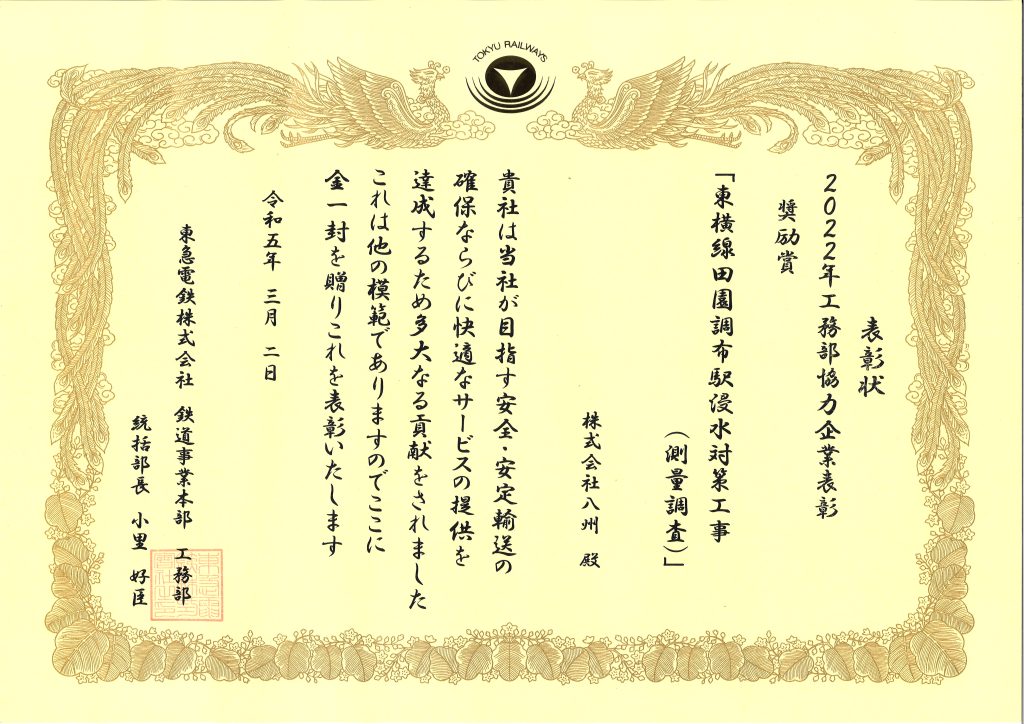 TOKYU RAILWAYS
表彰状
2022年工務部協力企業表彰
奨励賞
「東横線田園調布駅浸水対策工事
（測量調査）」
株式会社八州 殿
貴社は当社が目指す安全・安定輸送の
確保ならびに快適なサービスの提供を
達成するため多大なる貢献をされました
これは他の模範でありますのでここに
金一封を贈りこれを表彰いたします
令和五年 三月 二日
東急電鉄株式会社 鉄道事業本部 工務部
統括部長 小里 好臣